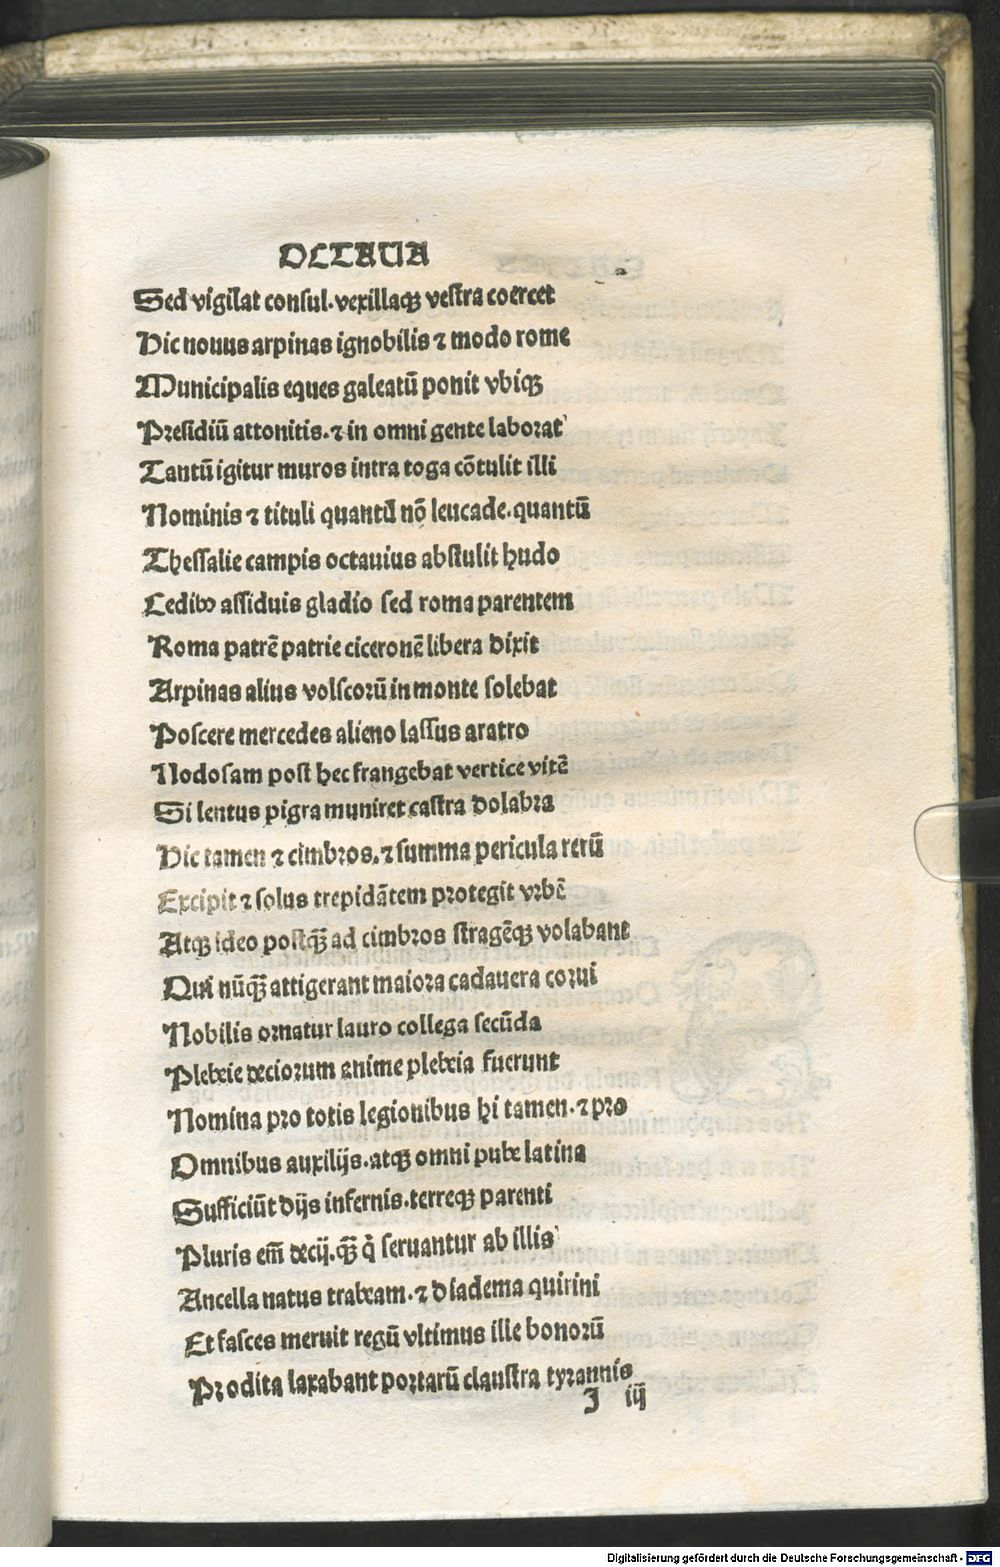 OCTAUA
Sed vigilat consul. vexillaqꝫ vestra coercet
Hic nouus arpinas ignobilis ⁊ modo rome
Municipalis eques galeatū ponit vbiqꝫ
Presidiū attonitis. ⁊ in omni gente laborat
Tantū igitur muros intra toga cōtulit illi
Nominis ⁊ tituli quantū nō leucade. quantū
Thessalie campis octauius abstulit hudo
Cedibꝰ assiduis gladio sed roma parentem
Roma patrē patrie ciceronē libera dixit
Arpinas alius volscorū in monte solebat
Poscere mercedes alieno lassus aratro
Nodosam post hec frangebat vertice vitē
Si lentus pigra muniret castra dolabra
Hic tamen ⁊ cimbros. ⁊ summa pericula rerū
Excipit ⁊ solus trepidātem protegit vrbē
Atqꝫ ideo postqꝫ̄ ad cimbros stragēqꝫ volabant
Qui nūqꝫ̄ attigerant maiora cadauera corui
Nobilis ornatur lauro collega secūda
Plebeie deciorum anime plebeia fuerunt
Nomina pro totis legionibus hi tamen. ⁊ pro
Omnibus auxilijs. atqꝫ omni pube latina
Sufficiūt dijs infernis. terreqꝫ parenti
Pluris em̄ decij. qꝫ̄ q̇ seruantur ab illis
Ancella natus trabeam. ⁊ diadema quirini
Et fasces meruit regū vltimus ille bonorū
Prodita laxabant portarū claustra tyrannis
I iij
Digitalisierung gefördert durch die Deutsche Forschungsgemeinschaft - DFG